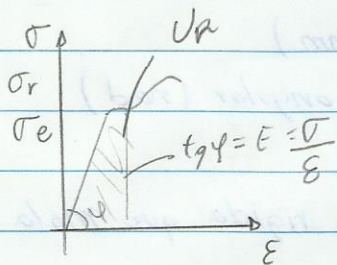 σ
U_R
σr
σe
tgφ = E = σ/ε
φ
ε